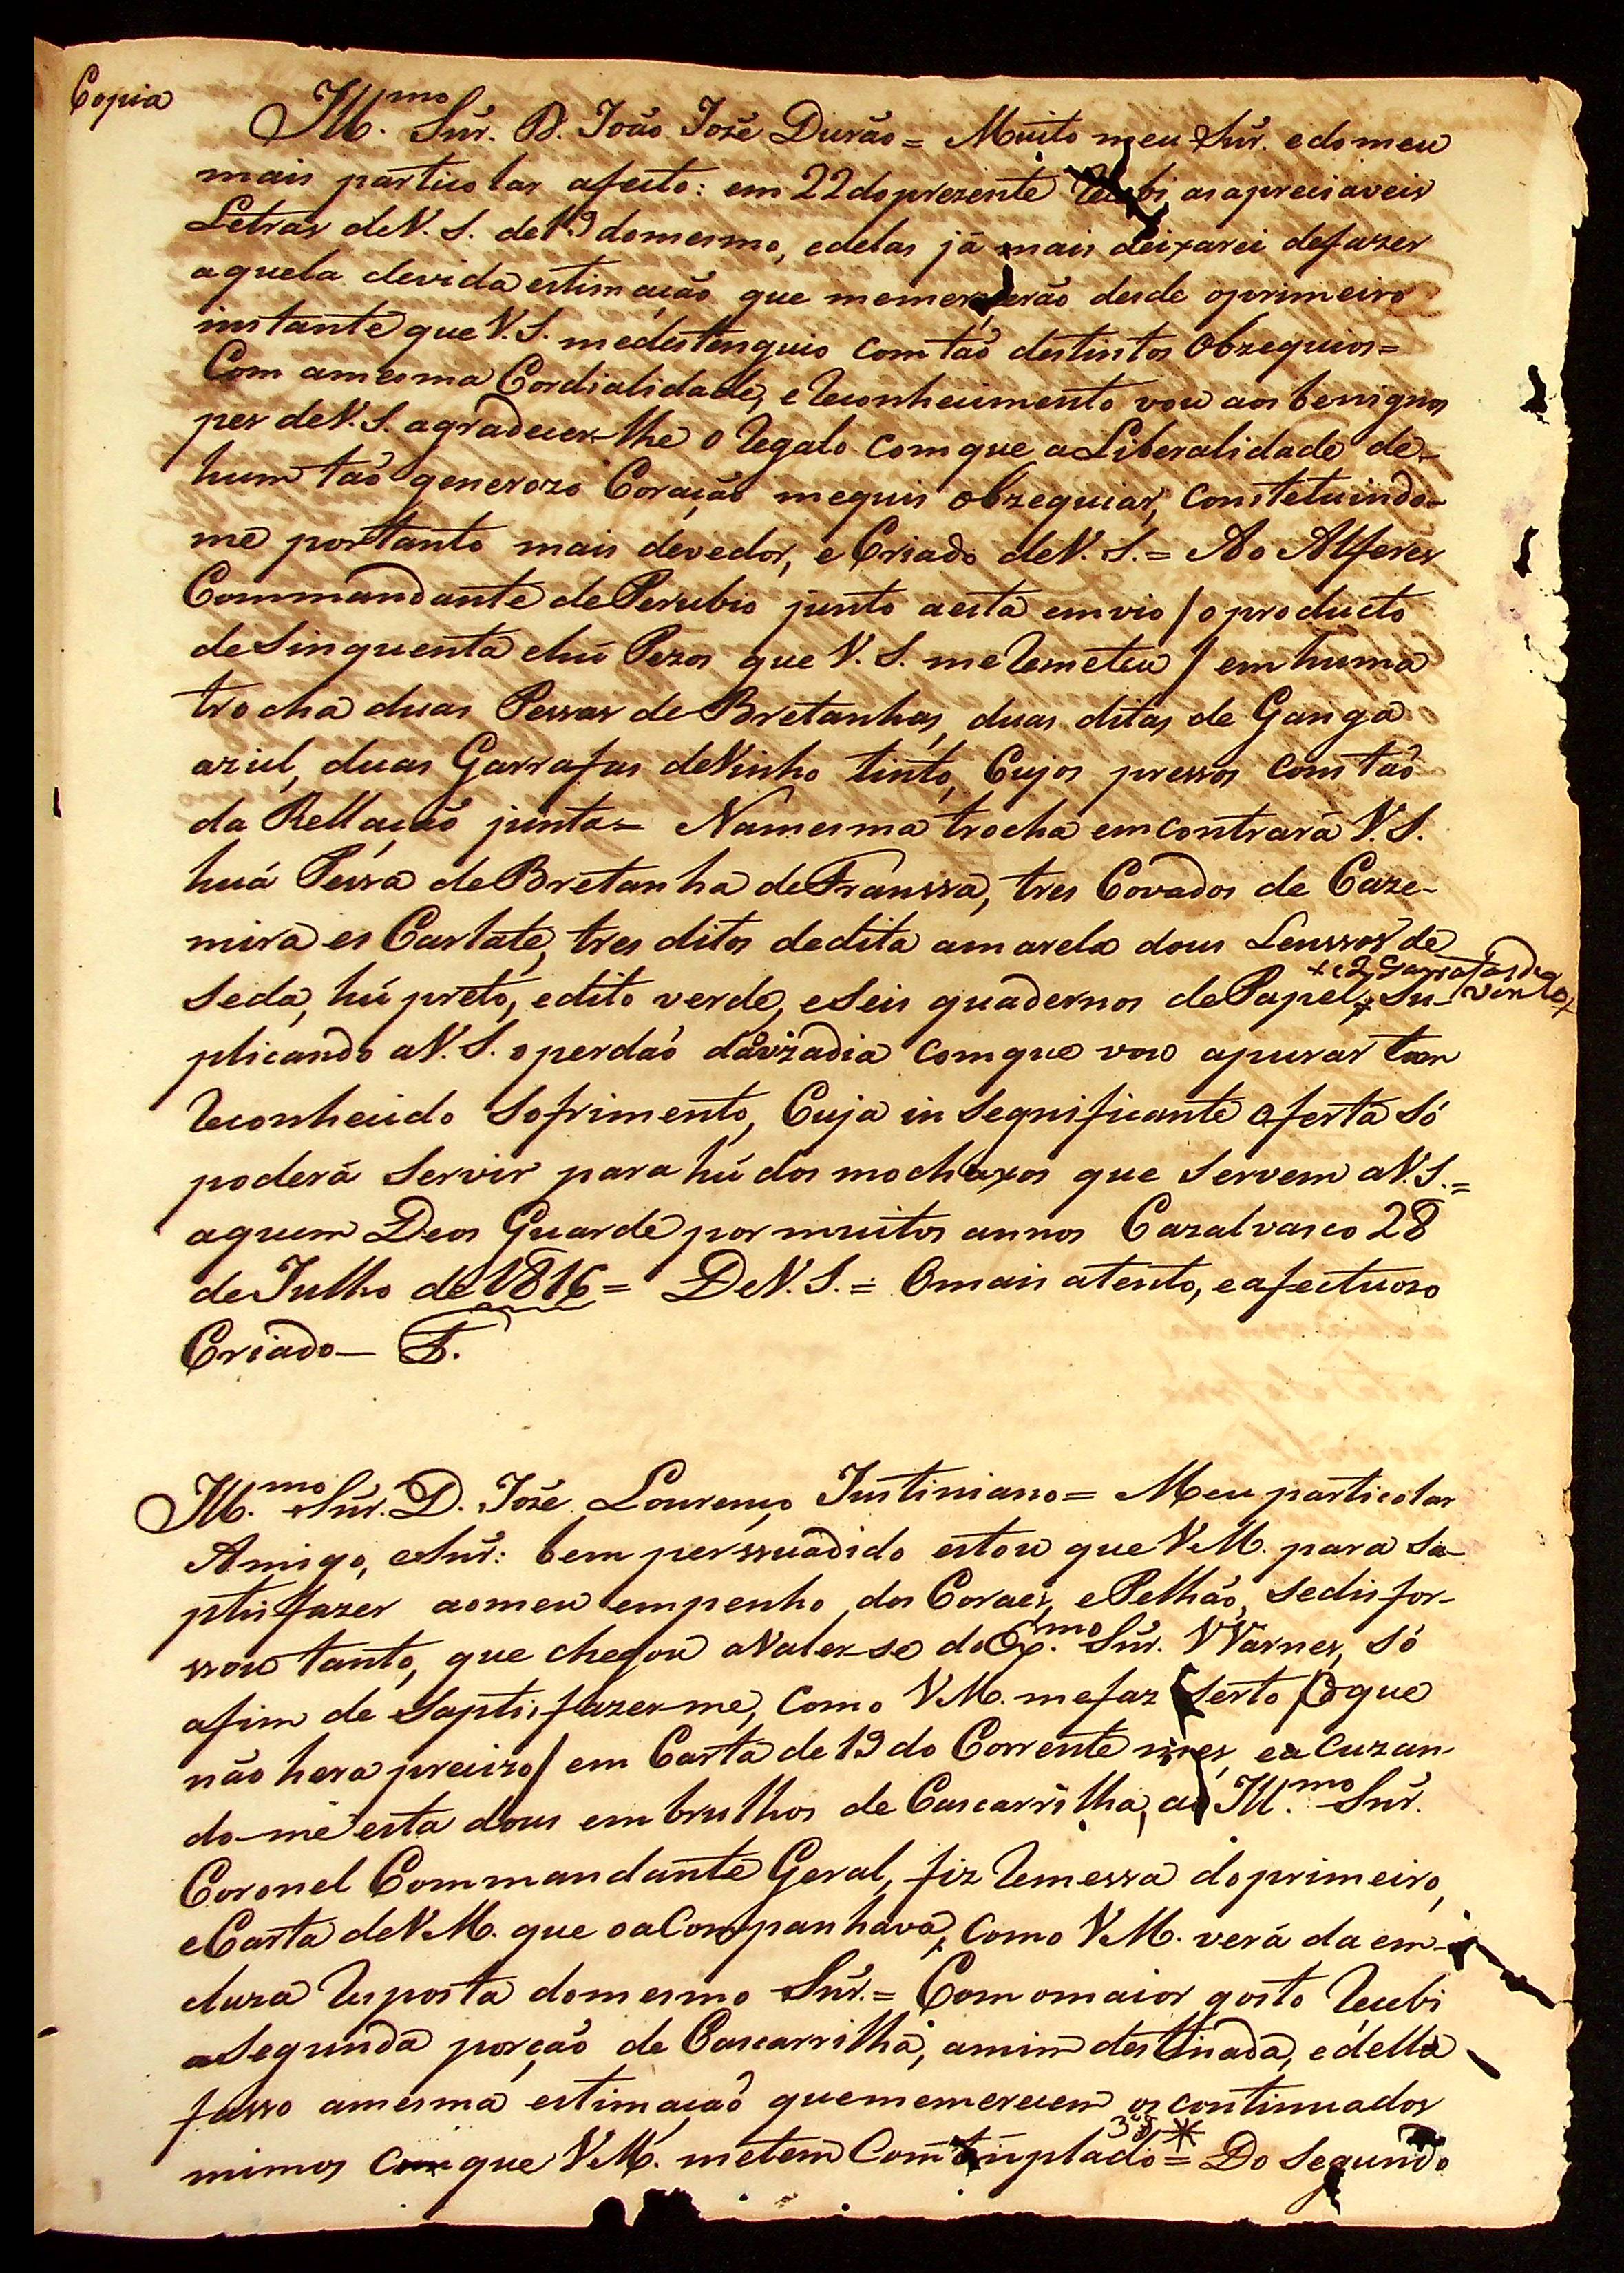 Copia
Ill.mo Snr. D. João Jozé Durão = Muito meu Snr. e do meu
mais particolar afecto: em 22 do prezente Recebi as apreciaveis
Letras de V. S. de 19 do mesmo, e delas já mais deixarei de fazer
aquela devida estimação que me merecerão desde o primeiro
instante que V. S. me destenguio com tão destintos Obzequios =
Com a mesma Cordialidade, e Reconhecimento vou aos benignos
pes de V. S. agradecer-lhe o Regalo com que a Liberalidade de
hum tão generozo Coração me quis obzequiar, constetuindo-
me portanto mais devedor, e Criado de V. S. = Ao Alferes
Commandante de Perubio junto a esta emvio / o producto
de Sinquenta e hú Pezos que V. S. me Remeteu / em huma
trocha duas Pessas de Bretanhas, duas ditas de Ganga
azul, duas Garrafas de Vinho tinto, Cujos pressos constão
da Rellação junta = Na mesma trocha emcontrará V. S.
huá Péssa de Bretanha de Franssa, tres Covados de Caze-
mira es Carlate, tres ditos de dita amarela dous Lenssos de
+ e 2 Garrafas de
vinho +
Seda, hú preto, e dito verde, e Seis quadernos de Papel, + Su-
plicando a V. S. o perdão da ouzadia com que vou apurar tam
Reconhecido Sofrimento, Cuja in Segnificante oferta Só
poderá Servir para hú dos mochaxos que Servem a V. S. =
a quem Deos Guarde por muitos annos Cazalvasco 28
de Julho de 1816 = De V. S. = O mais atento, e afectuozo
Criado — F.
Ill.mo Snr. D. Jozé Lourenço Justiniano = Meu particolar
Amigo, e Snr: bem perssuadido estou que V M. para Sa-
ptisfazer ao meu empenho dos Coraes, e Pelhão, Se disfor-
ssou tanto, que chegou a Valer-se do Ex.mo Snr. Warnes, Só
afim de Saptisfazer-me, Como V M. me faz Serto / O que
não hera precizo / em Carta de 19 do Corrente mes, e a Cuzan-
do-me esta dous embrulhos de Cascarrilha, ao Ill.mo Snr.
Coronel Commandante Geral, fiz Remessa do primeiro,
e Carta de V M. que o a Companhava, Como V M. verá da em-
cluza Resposta do mesmo Snr. = Com o maior gosto Recebi
a Segunda porção de Cascarrilha, a mim destinada, e della
fasso a mesma estimação que me merecem os continuados
mimos com que V M. me tem Comtemplado = Do Segundo